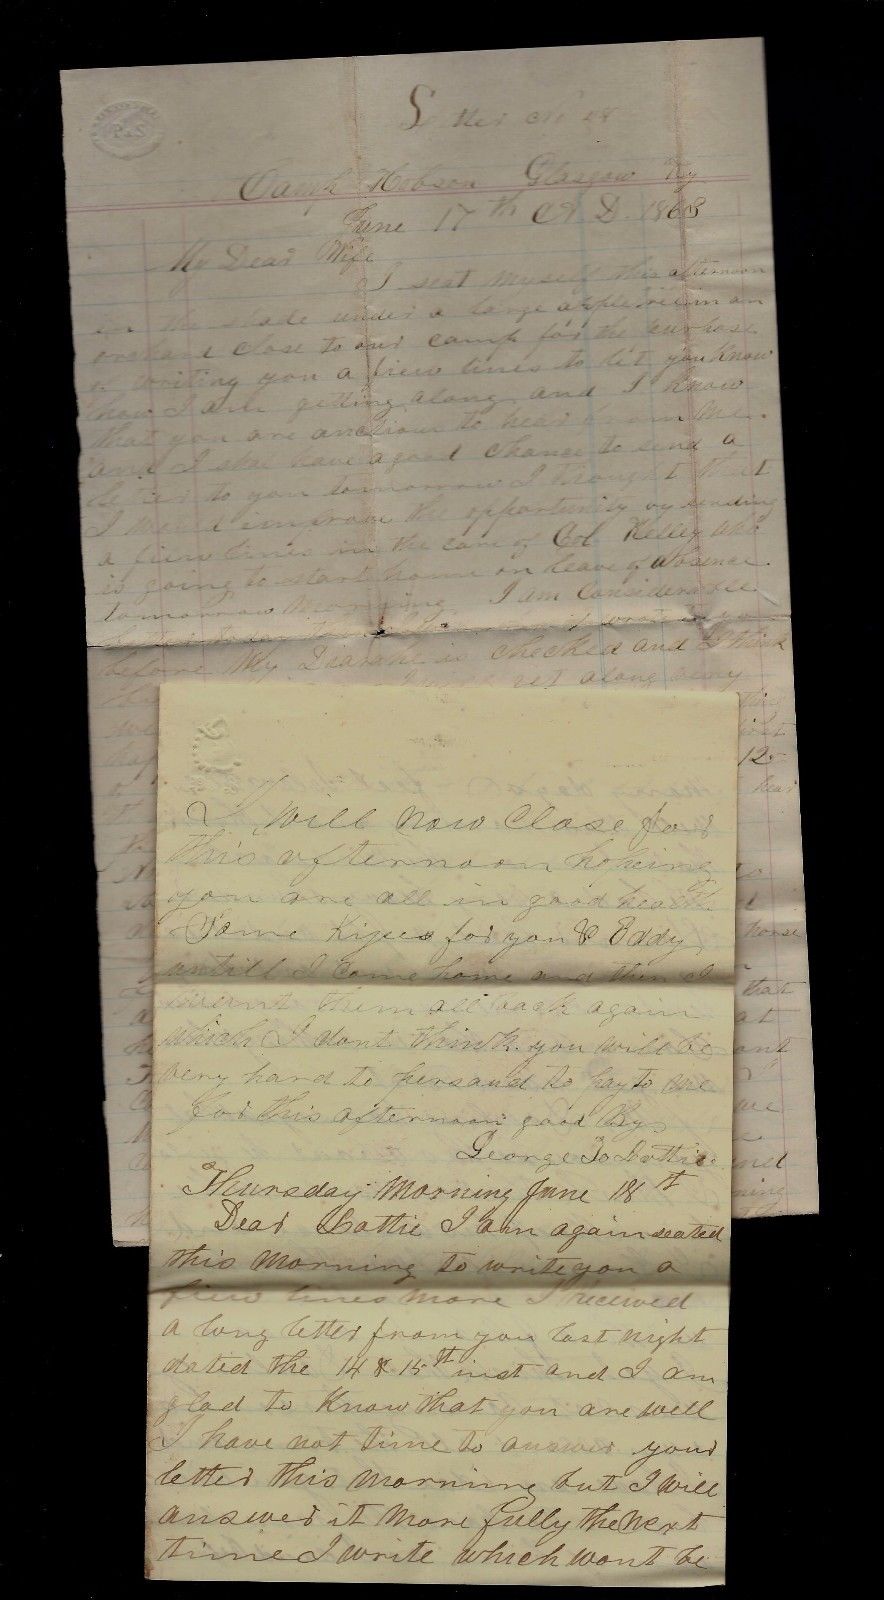 P & S
Letter No 48
Camp Hobson Glasgow Ky
June 17th A D. 1863
My Dear Wife
I seat myself this afternoon
in the shade under a large apple tree in an
orchard close to our camp for the purpose
of writing you a fiew lines to let you know
how I am getting along and I know
that you are anctious to hear from me
and I shal have a good chance to send a
letter to you tomorrow I thought that
I would improve the opportunity by sending
a fiew lines in the care of Col Kelley who
is going to start home on leave of absence
tomorrow morning I am Considerable
before My Diarahe is checked and I think
get along very
12
hear
horse
that
at
I Will now Close for
this afternoon hopeing
you are all in good health
Some Kises for you & Eddy
untill I come home and then I
want them all back again
which I dont think you will be
very hard to persaud to pay to me
for this afternoon good By
George To Lottie
Thursday Morning June 18th
Dear Lottie I am again seated
this morning to write you a
fiew lines more I received
a long letter from you last night
dated the 14 & 15th inst and I am
glad to Know that you are well
I have not time to answer your
letter this morning but I will
answer it more fully the next
time I write which wont be